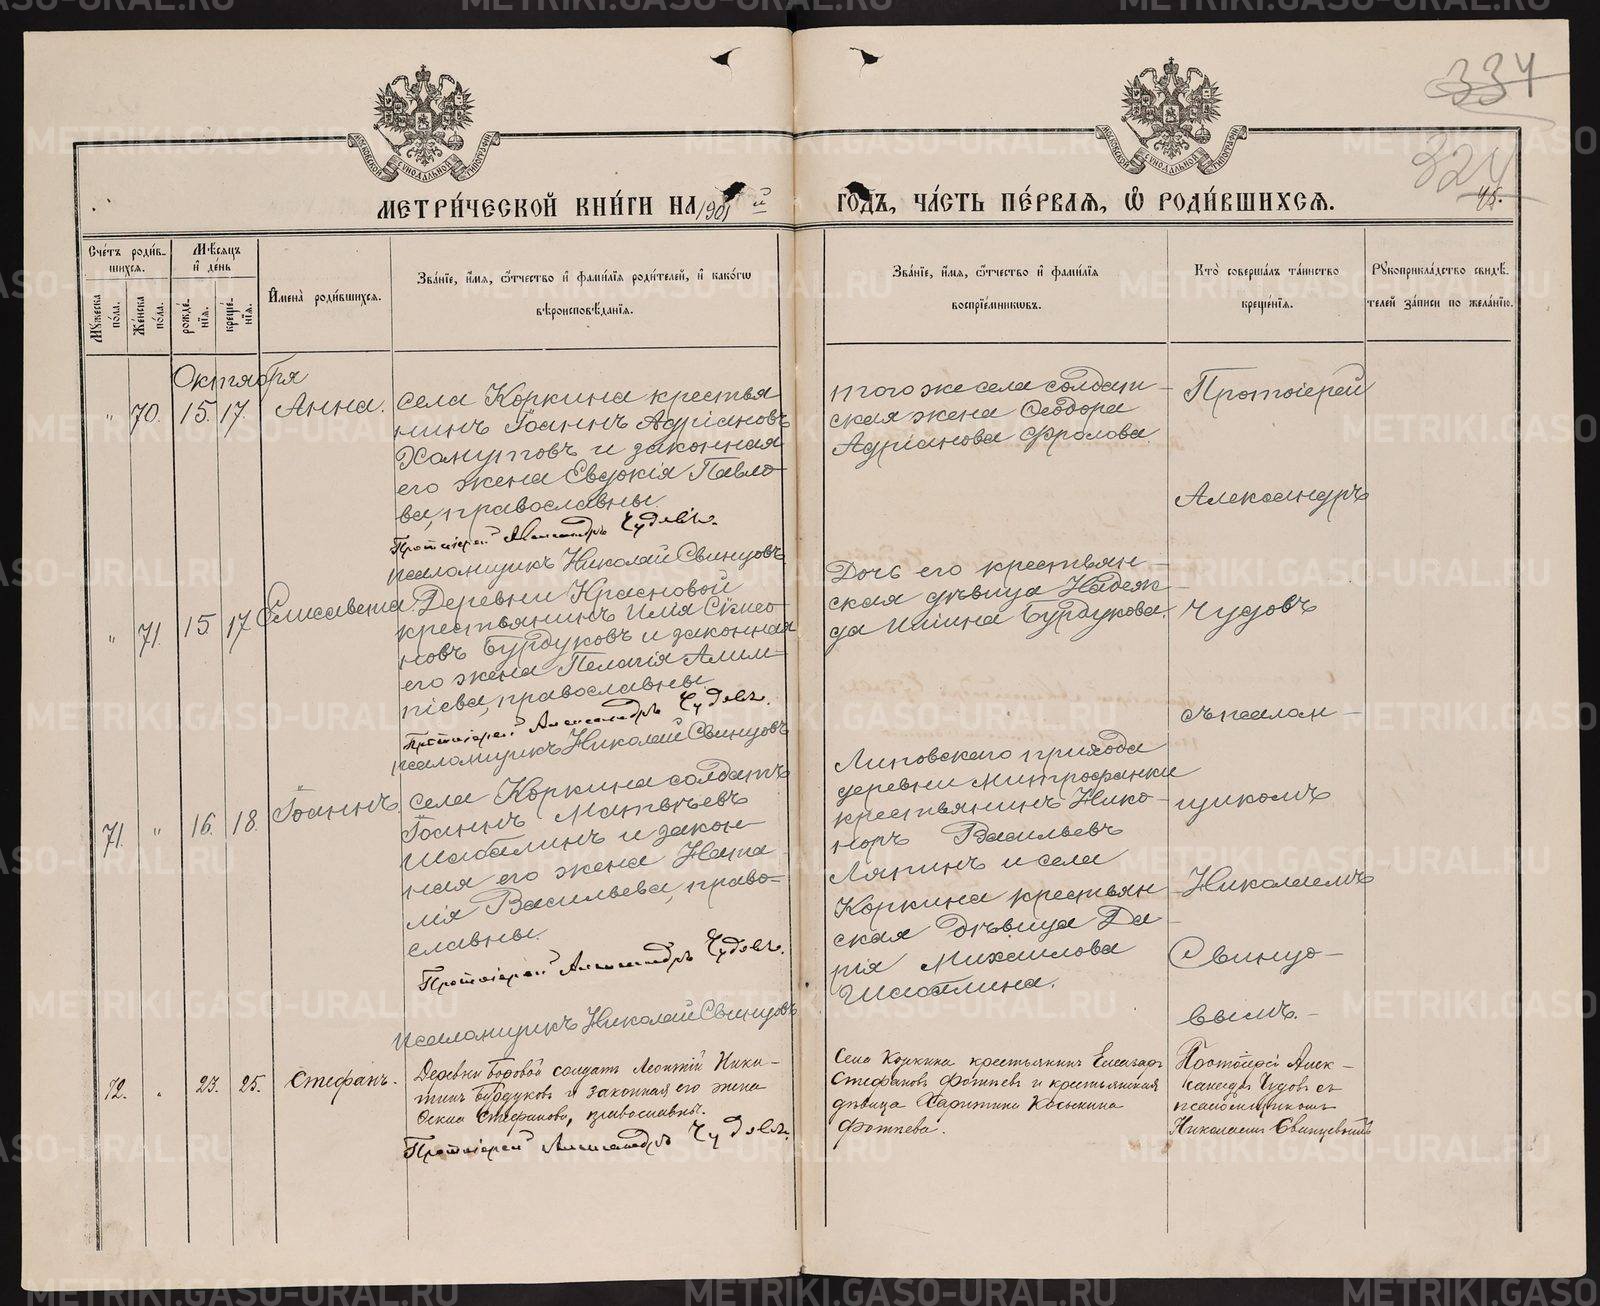 334
324
45.
МЕТРИ́ЧЕСКОЙ КНИ́ГИ НА 1901 й ГОДЪ, ЧА́СТЬ ПЕ́РВАЯ, Ѿ РОДИ́ВШИХСЯ.
Сче́тъ роди́в-
шихся.
Мѣ́сяцъ
и҆ де́нь
Мꙋ́жеска
по́ла.
Же́нска
по́ла.
рожде́-
нїѧ.
креще́-
нїѧ.
И҆мена̀ роди́вшихся.
Зва́нїе, и҆́мя, ѻ҆́тчество и҆ фами́лїя роди́телей, и҆ како́гѡ
вѣроисповѣ́данїя.
Зва́нїе, и҆́мя, ѻ҆́тчество и҆ фами́лїя
воспрїе́мниковъ.
Кто̀ соверша́лъ та́инство
креще́нїя.
Рꙋкоприкла́дство свидѣ́-
телей за́писи по жела́нїю.
Октября
" 70. 15. 17. Анна.
села Коркина крестья
нинъ Іоаннъ Адріановъ
Хомутовъ и законная
его жена Евдокія Павло
ва, православны
Протоіерей Александръ Чудовъ.
псаломщикъ Николай Свинцовъ
того же села солдат-
ская жена Ѳеодора
Адріанова Фролова.
" 71. 15 17 Елисавета.
Деревни Красновой
крестьянинъ Илія Сѵмео
новъ Бурдуковъ и законная
его жена Пелагія Алим-
піева, православны
Протоіерей Александръ Чудовъ.
псаломщикъ Николай Свинцовъ
Дочь его крестьян-
ская дѣвица Надеж-
да Ильина Бурдукова.
71. " 16. 18. Іоаннъ.
села Коркина солдатъ
Іоаннъ Матвѣевъ
Шабалинъ и закон-
ная его жена Ната-
лія Васильева, право-
славны.
Протоіерей Александръ Чудовъ.
псаломщикъ Николай Свинцовъ
Липовскаго прихода
деревни Митрофанки
крестьянинъ Нико-
норъ Васильевъ
Ляпинъ и села
Коркина крестьян
ская дѣвица Да-
рія Михаилова
Шабалина.
Протоіерей
Александръ
Чудовъ
съ псалом-
щикомъ
Николаемъ
Свинцо-
вымъ.-
72. " 23. 25. Стефанъ.
Деревни Боровой солдатъ Леонтій Ники-
тинъ Бурдуковъ и законная его жена
Ѳекла Стефанова, православны.
Протоіерей Александръ Чудовъ.
Села Коркина крестьянинъ Елеазаръ
Стефановъ Фотіевъ и крестьянская
дѣвица Харитина Косьмина
Фотіева.
Протоіерей Алек-
сандръ Чудовъ съ
псаломщикомъ
Николаемъ Свинцовымъ